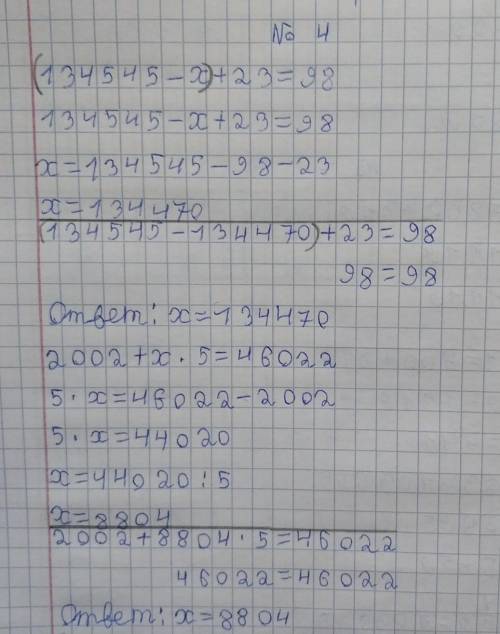 № 4
(134545-x)+23=98
134545-x+23=98
x=134545-98-23
x=134470
(134545-134470)+23=98
98=98
Ответ: x=134470
2002+x·5=46022
5·x=46022-2002
5·x=44020
x=44020:5
x=8804
2002+8804·5=46022
46022=46022
Ответ: x=8804